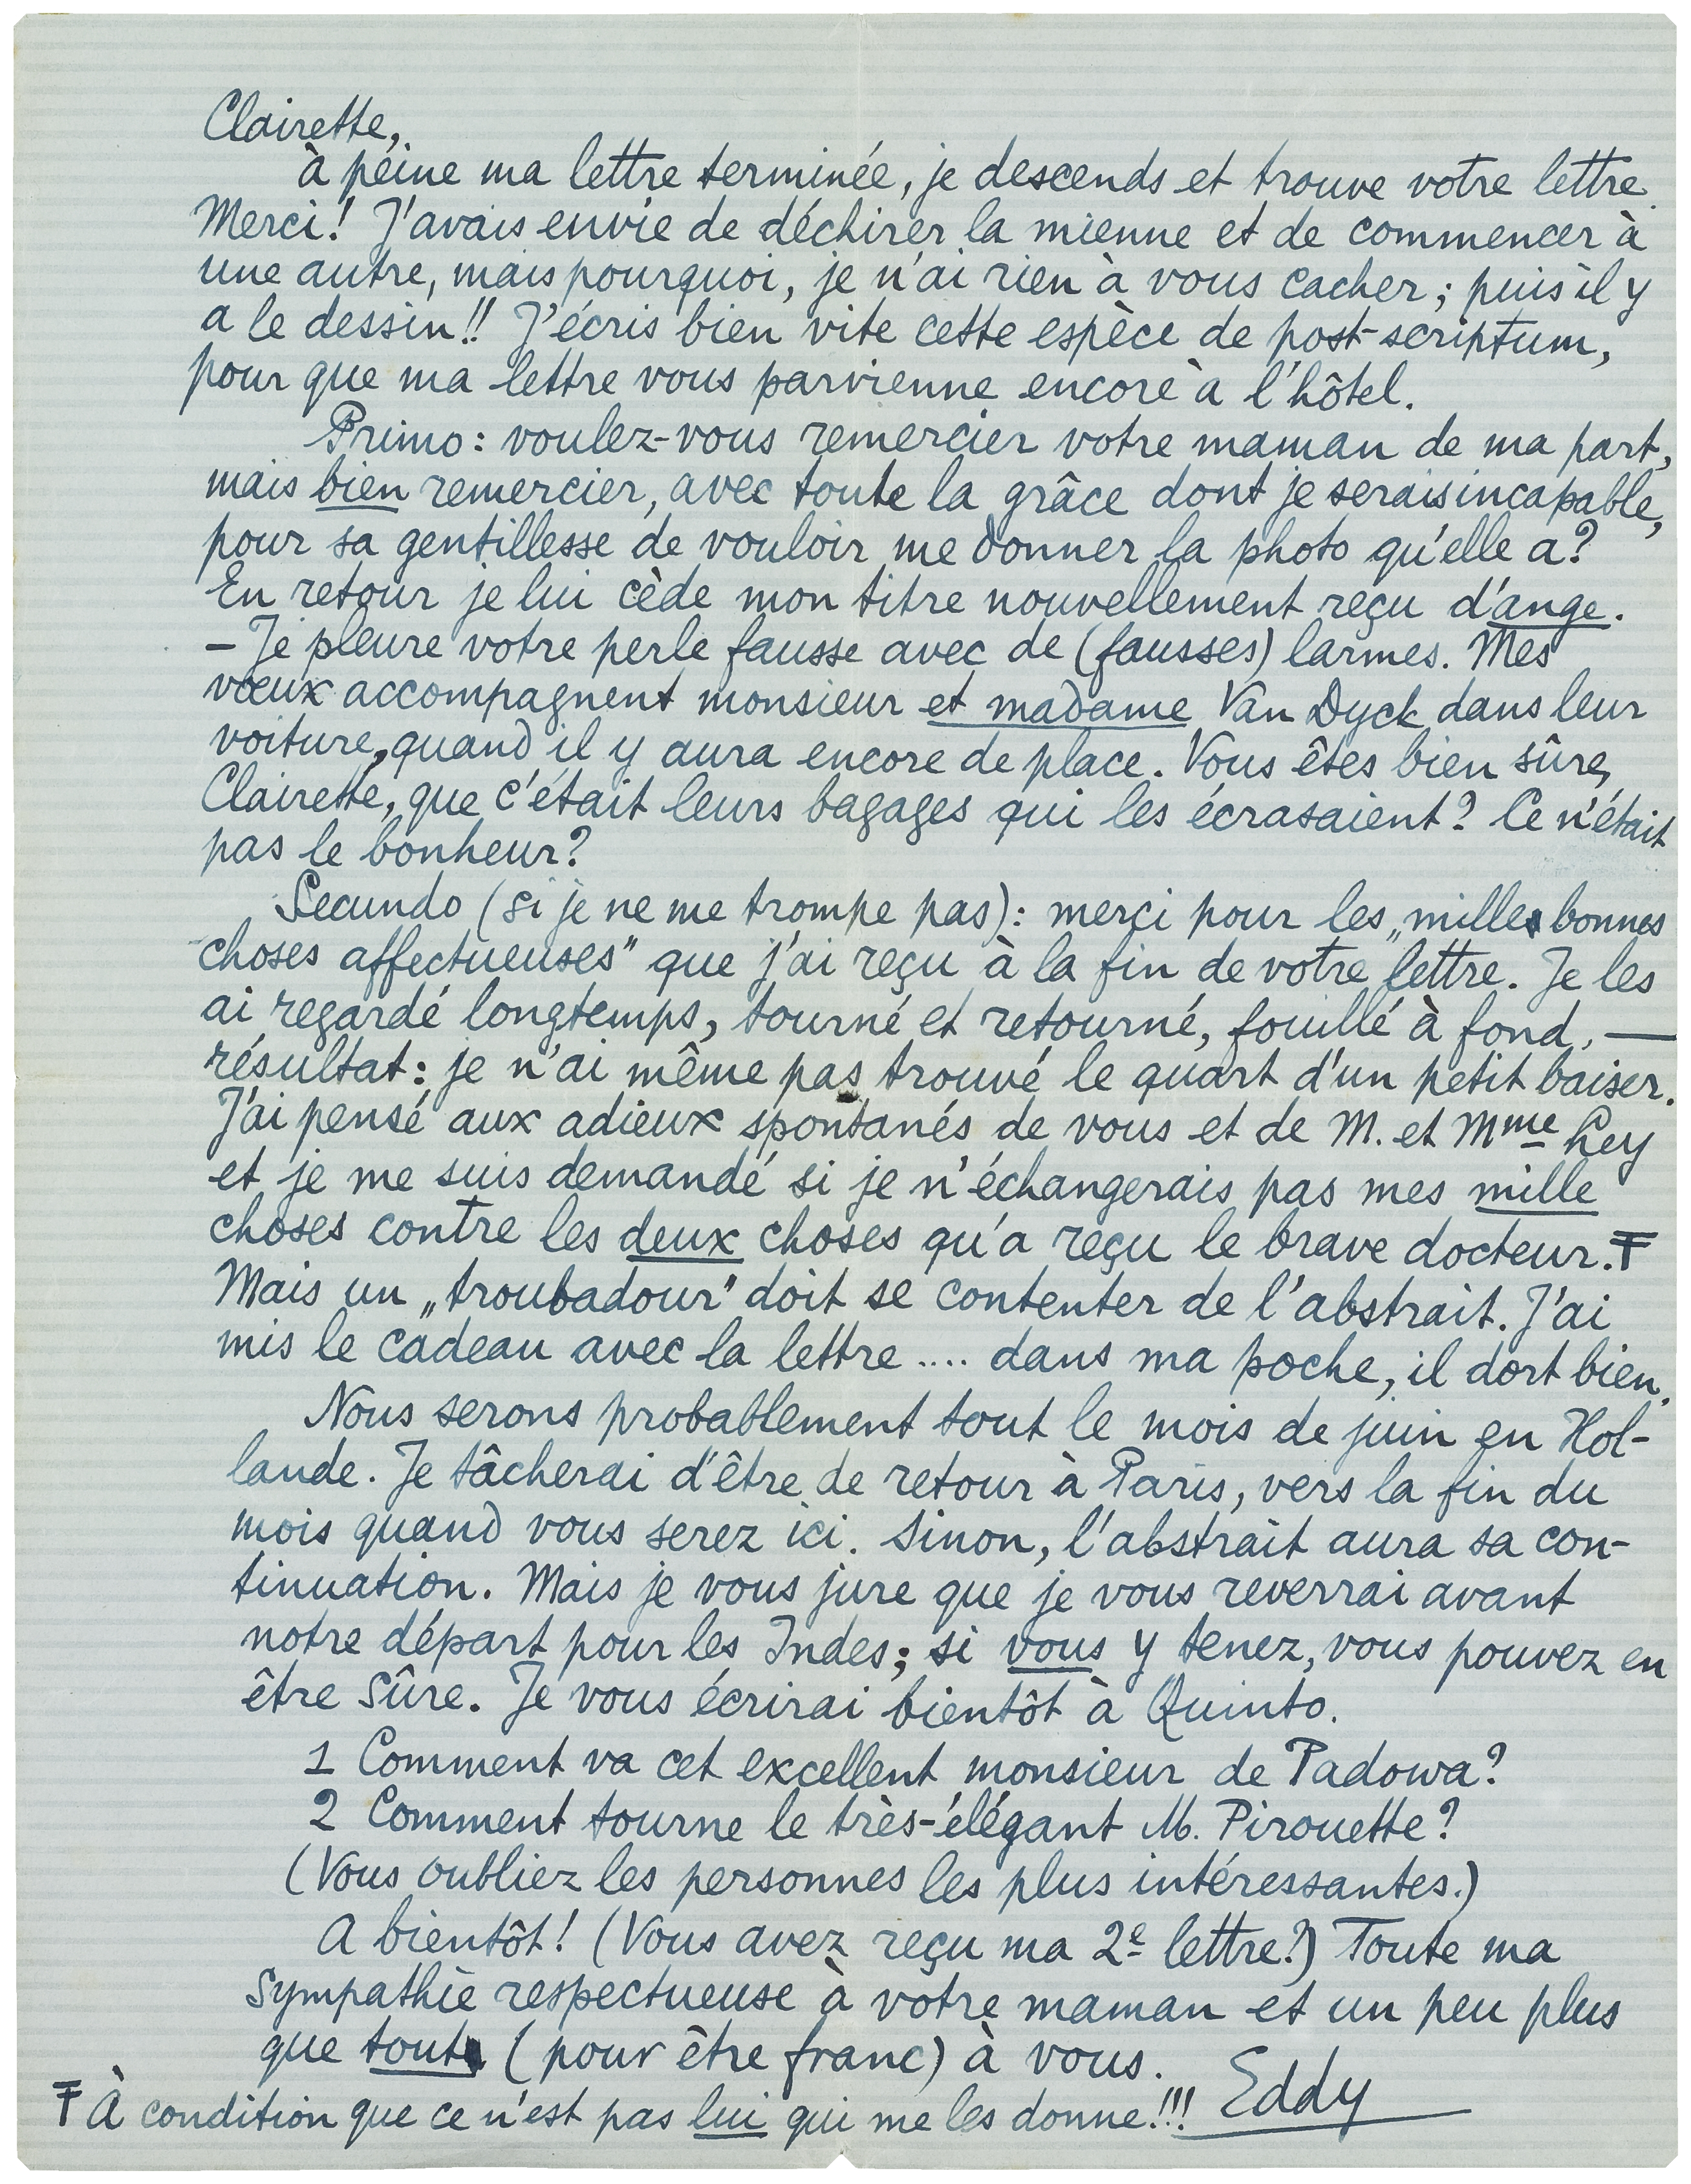 Clairette,
à peine ma lettre terminée, je descends et trouve votre lettre.
Merci! J'avais envie de déchirer la mienne et de commencer à
une autre, mais pourquoi, je n'ai rien à vous cacher; puis il y
a le dessin!! J'écris bien vite cette espèce de post-scriptum,
pour que ma lettre vous parvienne encore à l'hôtel.
Primo: voulez-vous remercier votre maman de ma part,
mais bien remercier, avec toute la grâce dont je serais incapable,
pour sa gentillesse de vouloir me donner la photo qu'elle a?
En retour je lui cède mon titre nouvellement reçu d'ange.
— Je pleure votre perle fausse avec de (fausses) larmes. Mes
vœux accompagnent monsieur et madame Van Dyck dans leur
voiture, quand il y aura encore de place. Vous êtes bien sûre,
Clairette, que c'était leurs bagages qui les écrasaient? Ce n'était
pas le bonheur?
Secundo (si je ne me trompe pas): merci pour les „mille bonnes
choses affectueuses" que j'ai reçu à la fin de votre lettre. Je les
ai regardé longtemps, tourné et retourné, fouillé à fond, —
résultat: je n'ai même pas trouvé le quart d'un petit baiser.
J'ai pensé aux adieux spontanés de vous et de M. et Mme Ley
et je me suis demandé si je n'échangerais pas mes mille
choses contre les deux choses qu'a reçu le brave docteur. Ŧ
Mais un „troubadour" doit se contenter de l'abstrait. J'ai
mis le cadeau avec la lettre .... dans ma poche, il dort bien.
Nous serons probablement tout le mois de juin en Hol-
lande. Je tâcherai d'être de retour à Paris, vers la fin du
mois quand vous serez ici. Sinon, l'abstrait aura sa con-
tinuation. Mais je vous jure que je vous reverrai avant
notre départ pour les Indes; si vous y tenez, vous pouvez en
être sûre. Je vous écrirai bientôt à Quinto.
1 Comment va cet excellent monsieur de Padowa?
2 Comment tourne le très-élégant M. Pirouette?
(Vous oubliez les personnes les plus intéressantes.)
A bientôt! (Vous avez reçu ma 2e lettre?) Toute ma
sympathie respectueuse à votre maman et un peu plus
que tout (pour être franc) à vous.
Eddy
Ŧ À condition que ce n'est pas lui qui me les donne!!!